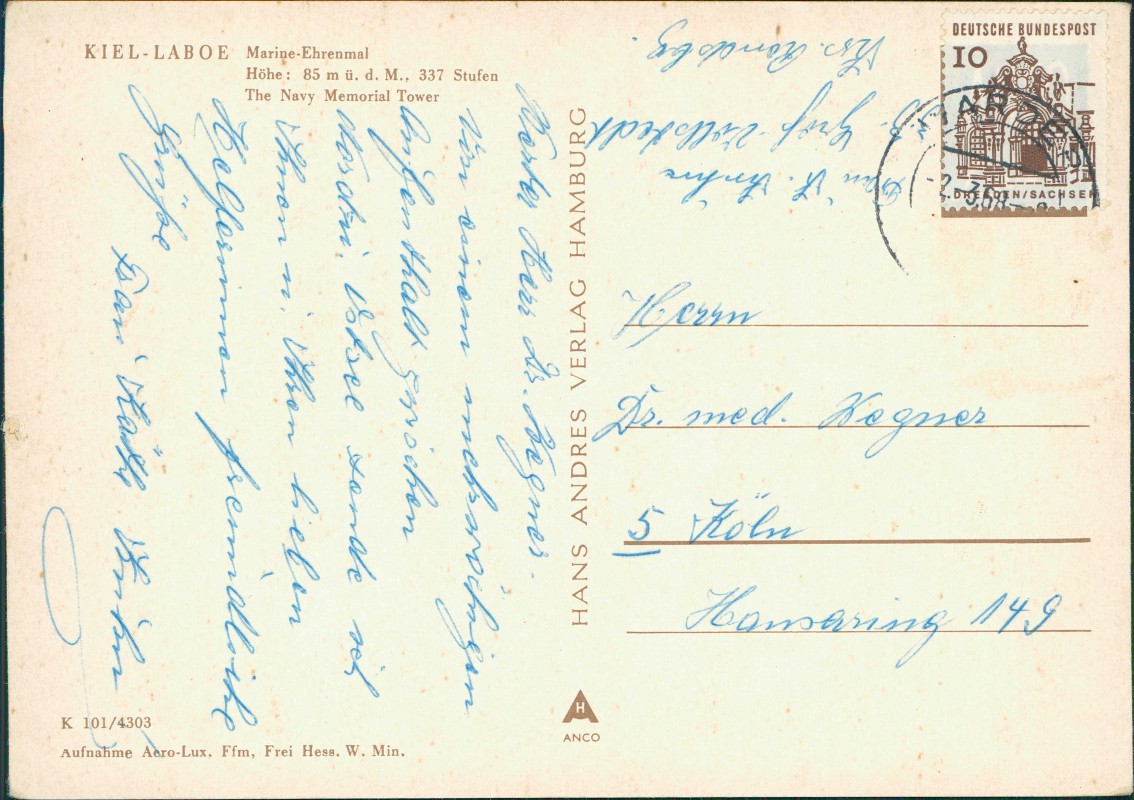 KIEL-LABOE Marine-Ehrenmal
Höhe: 85 m ü. d. M., 337 Stufen
The Navy Memorial Tower
Werter Herr Dr. Wegner.
Von einem mehrwöchigen
Aufenthalt zwischen
Nord- u. Ostsee sende ich
Ihnen u. Ihren lieben
Helferinnen freundliche
Grüße
Frau Käthe
K 101/4303
Aufnahme Aero-Lux, Ffm, Frei Hess. W. Min.
HANS ANDRES VERLAG HAMBURG
H
ANCO
Groß-Vollstedt
Krs. Rendsbg.
DEUTSCHE BUNDESPOST
10
DRESDEN/SACHSEN
Herrn
Dr. med. Wegner
5 Köln
Hansaring 149